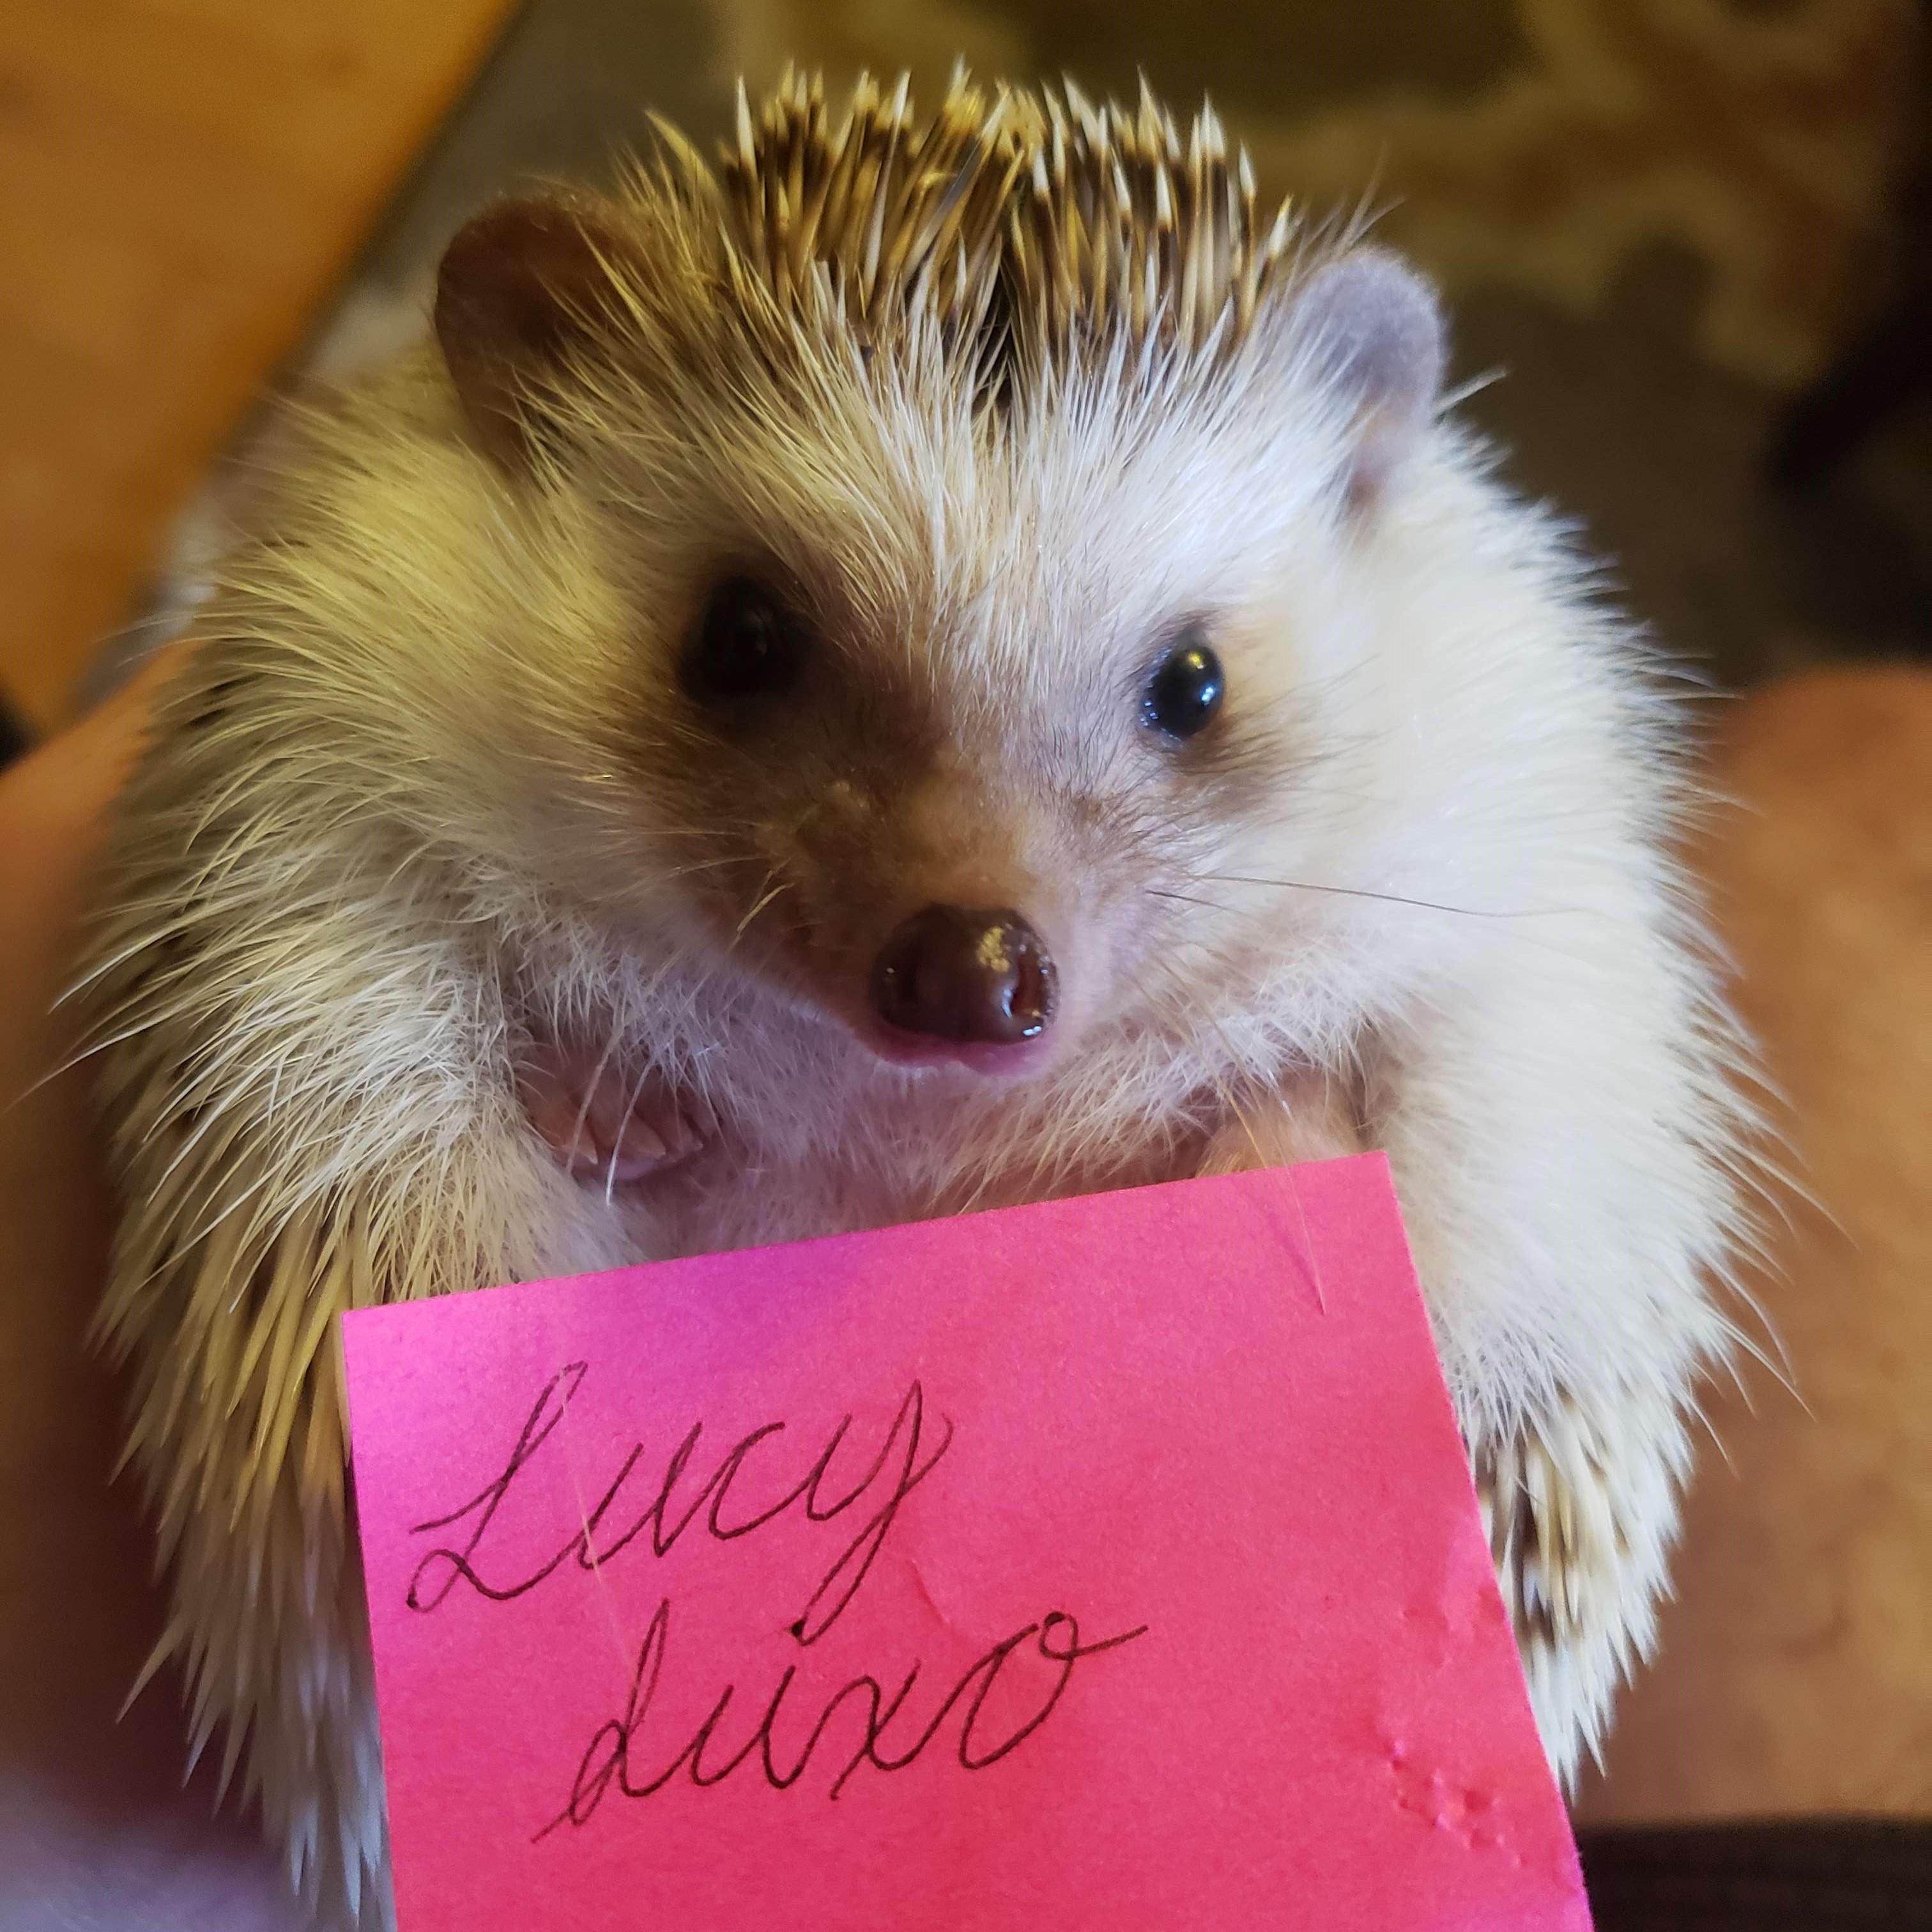 Lucy
duxo